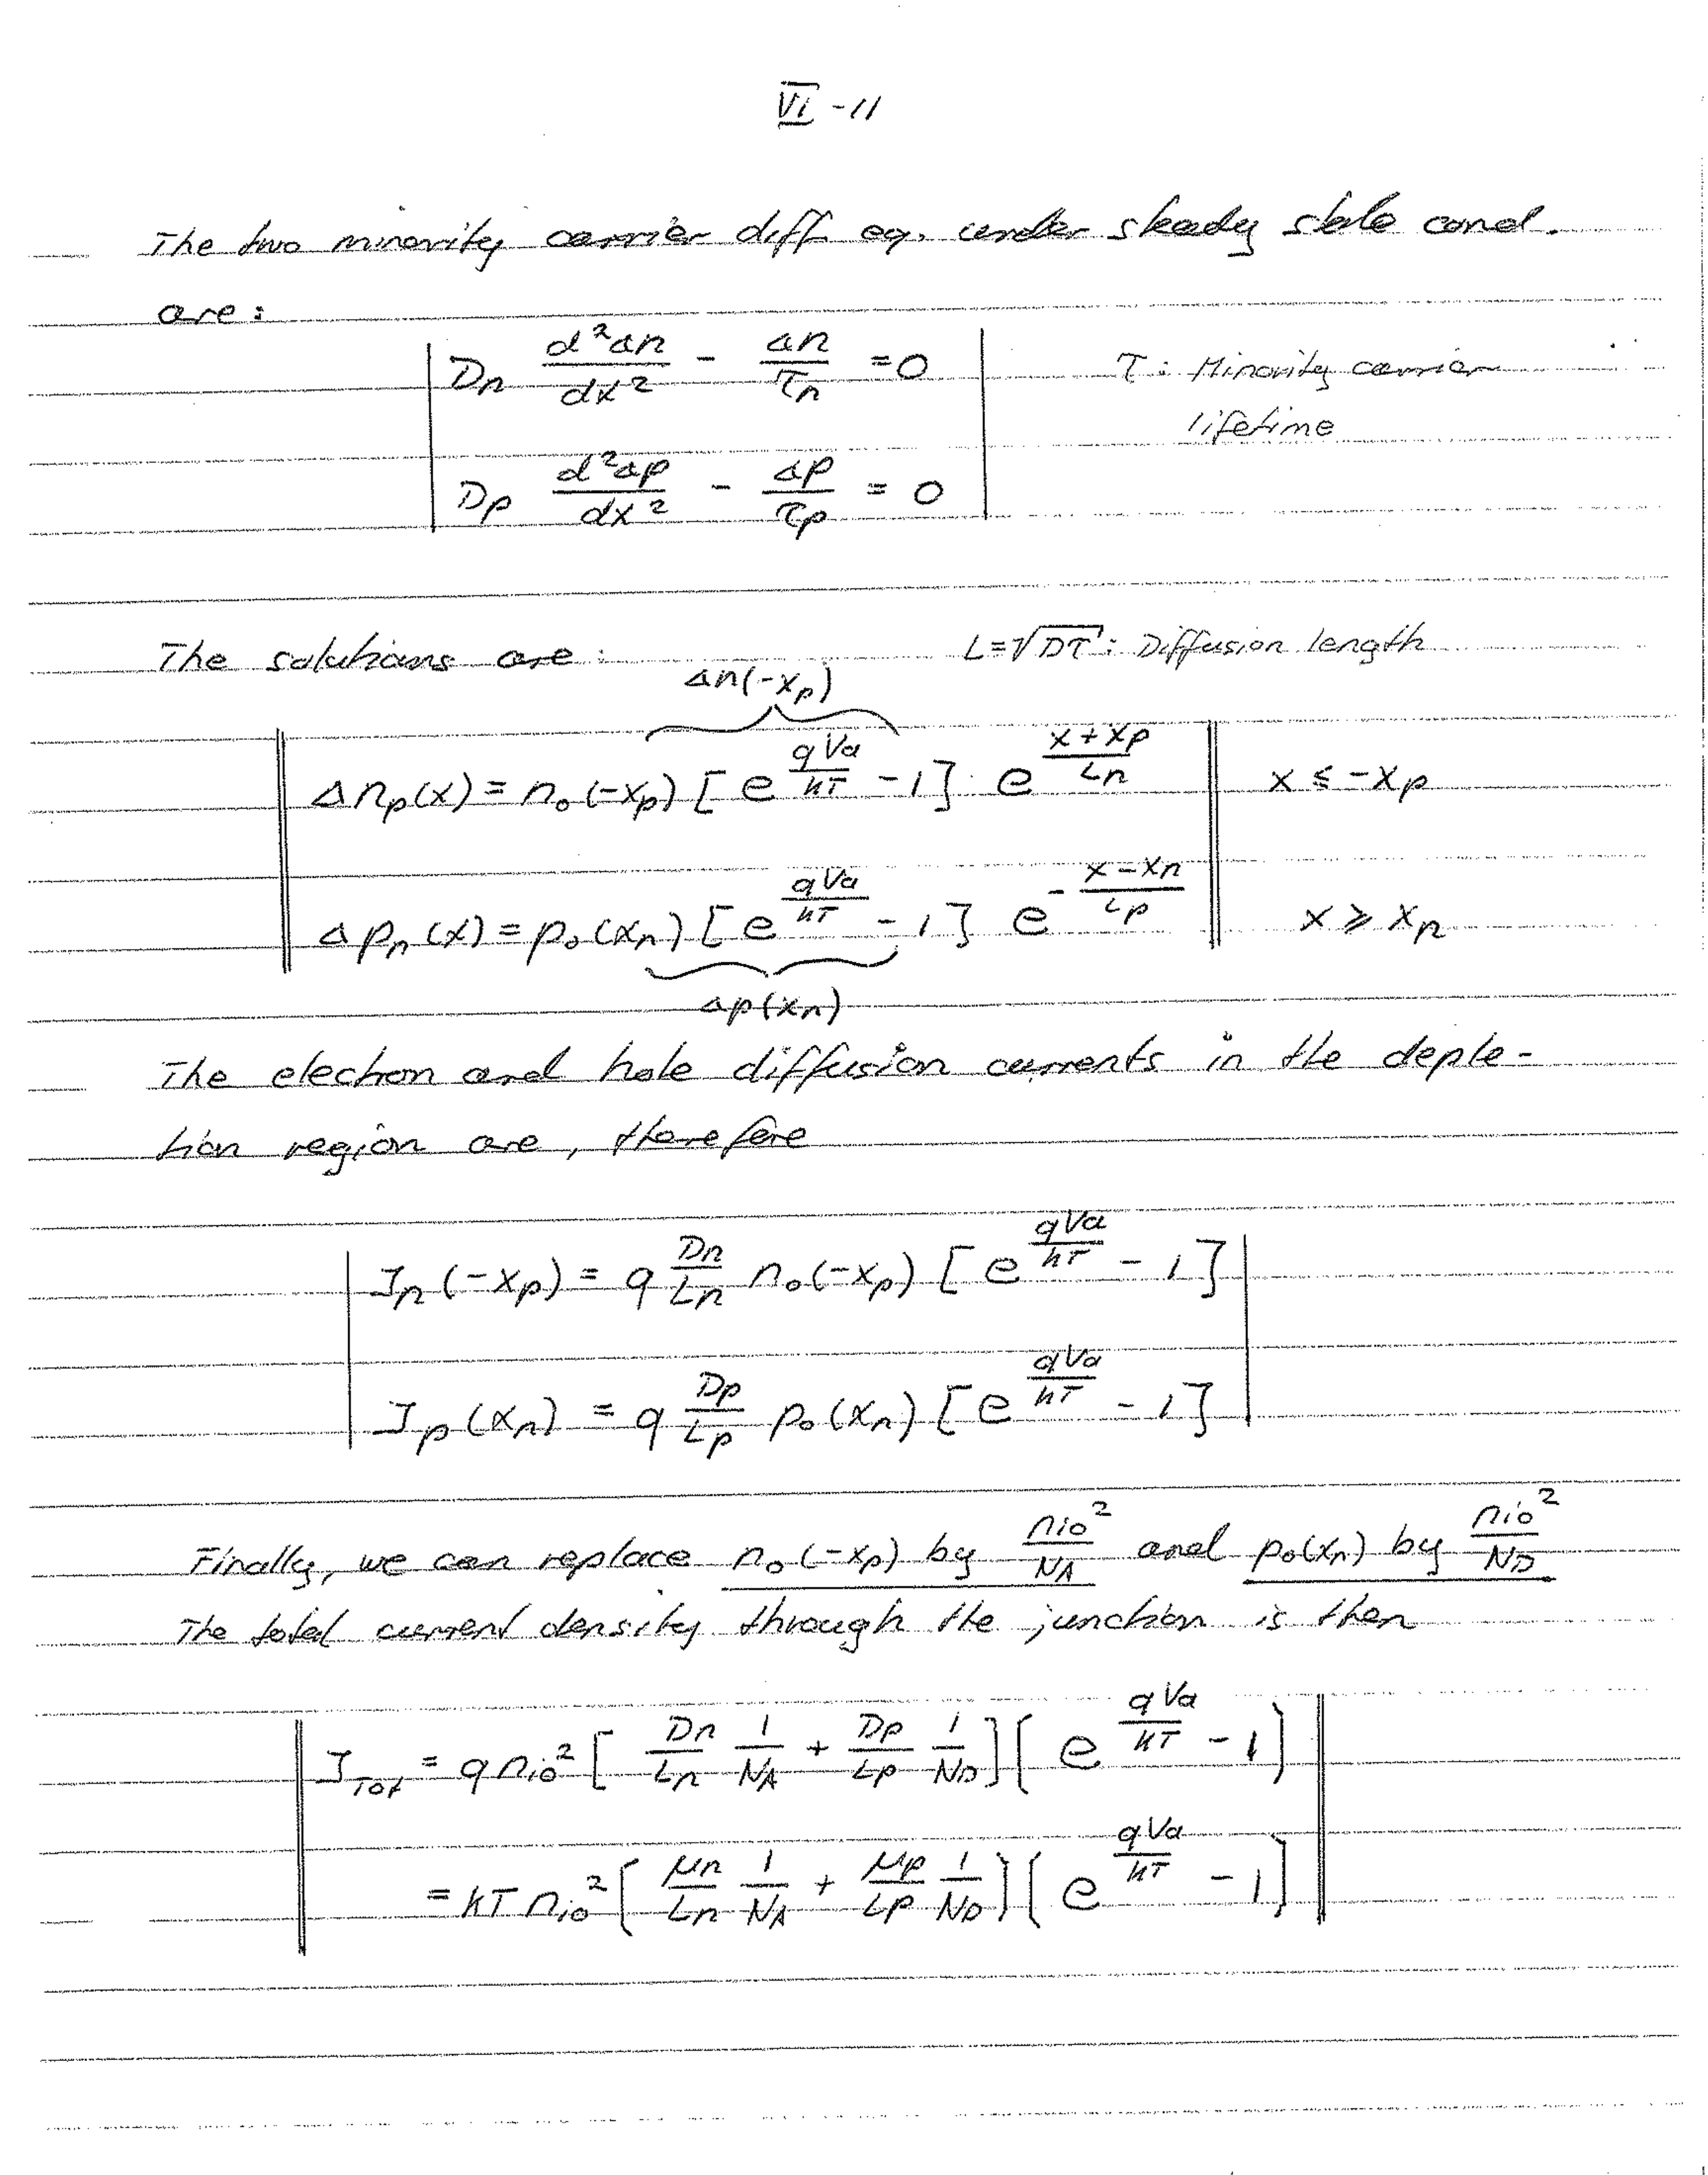 VI -11
The two minority carrier diff. eq. under steady state cond.
are:
Dn d²Δn/dx² - Δn/τn = 0
τ: Minority carrier
lifetime
Dp d²Δp/dx² - Δp/τp = 0
The solutions are: L=√Dτ: Diffusion length
Δn(-xp)
Δnp(x) = n₀(-xp) [e^(qVa/kT) - 1] e^((x+xp)/Ln) x ≤ -xp
Δpn(x) = p₀(xn) [e^(qVa/kT) - 1] e^(-(x-xn)/Lp) x ≥ xn
Δp(xn)
The electron and hole diffusion currents in the deple-
tion region are, therefore
Jn(-xp) = q Dn/Ln n₀(-xp) [e^(qVa/kT) - 1]
Jp(xn) = q Dp/Lp p₀(xn) [e^(qVa/kT) - 1]
Finally, we can replace n₀(-xp) by nio²/NA and p₀(xn) by nio²/ND
The total current density through the junction is then
JTot = q nio² [Dn/Ln 1/NA + Dp/Lp 1/ND] [e^(qVa/kT) - 1]
= kT nio² [μn/Ln 1/NA + μp/Lp 1/ND] [e^(qVa/kT) - 1]